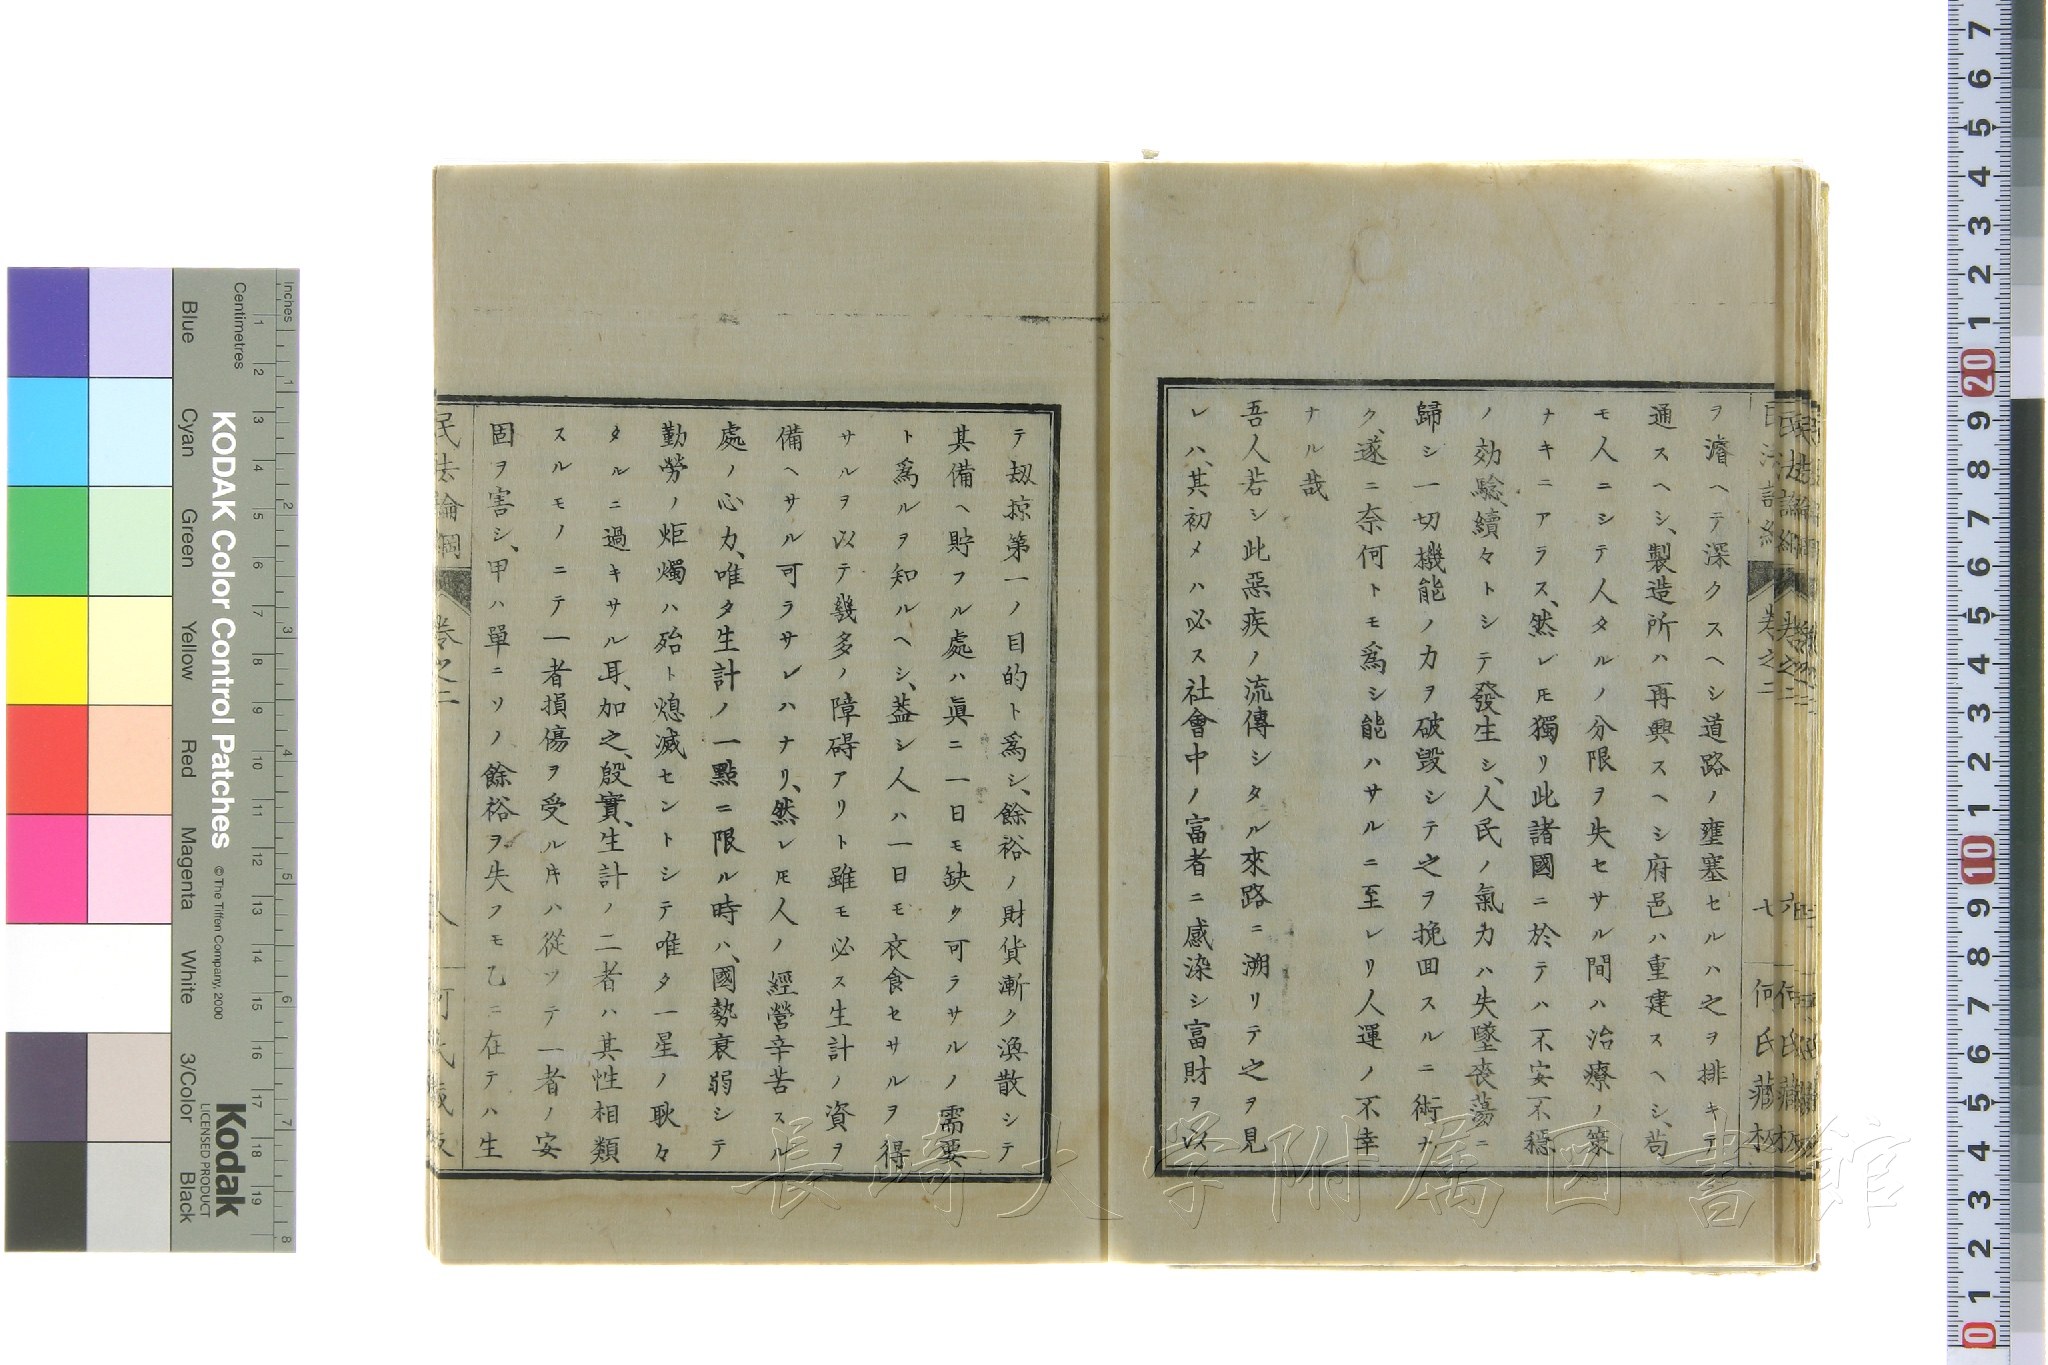 ヲ濬ヘテ深クスヘシ道路ノ壅塞セルハ之ヲ排キテ
通スヘシ、製造所ハ再興スヘシ府邑ハ重建スヘシ、苟
モ人ニシテ人タルノ分限ヲ失セサル間ハ治療ノ策
ナキニアラス、然レ𪜈獨リ此諸國ニ於テハ不安不穩
ノ効驗續々トシテ發生シ、人民ノ氣力ハ失墜喪蕩ニ
歸シ一切機能ノカヲ破毀シテ之ヲ挽回スルニ術ナ
ク、遂ニ奈何トモ爲シ能ハサルニ至レリ人運ノ不幸
ナル哉
吾人若シ此惡疾ノ流傳シタル來路ニ溯リテ之ヲ見
レハ、其初メハ必ス社會中ノ富者ニ感染シ富財ヲ以
テ刼掠第一ノ目的ト爲シ、餘裕ノ財貨漸ク渙散シテ
其備ヘ貯フル處ハ眞ニ一日モ缺ク可ラサルノ需要
ト爲ルヲ知ルヘシ、蓋シ人ハ一日モ衣食セサルヲ得
サルヲ以テ幾多ノ障碍アリト雖モ必ス生計ノ資ヲ
備ヘサル可ラサレハナリ、然レ𪜈人ノ經營辛苦スル
處ノ心力、唯タ生計ノ一點ニ限ル時ハ、國勢衰弱シテ
勤勞ノ炬燭ハ殆ト熄滅セントシテ唯タ一星ノ耿々
タルニ過キサル耳、加之、殷實、生計ノ二者ハ其性相類
スルモノニテ一者損傷ヲ受ルキハ從ツテ一者ノ安
固ヲ害シ、甲ハ單ニソノ餘裕ヲ失フモ乙ニ在テハ生
民法論綱
卷之二
八
何氏藏版
民法論綱
卷之二
七
何氏藏板
長崎大学附属図書館
KODAK Color Control Patches
© The Tiffen Company, 2000
Kodak
LICENSED PRODUCT
Inches
Centimetres
Blue
Cyan
Green
Yellow
Red
Magenta
White
3/Color
Black